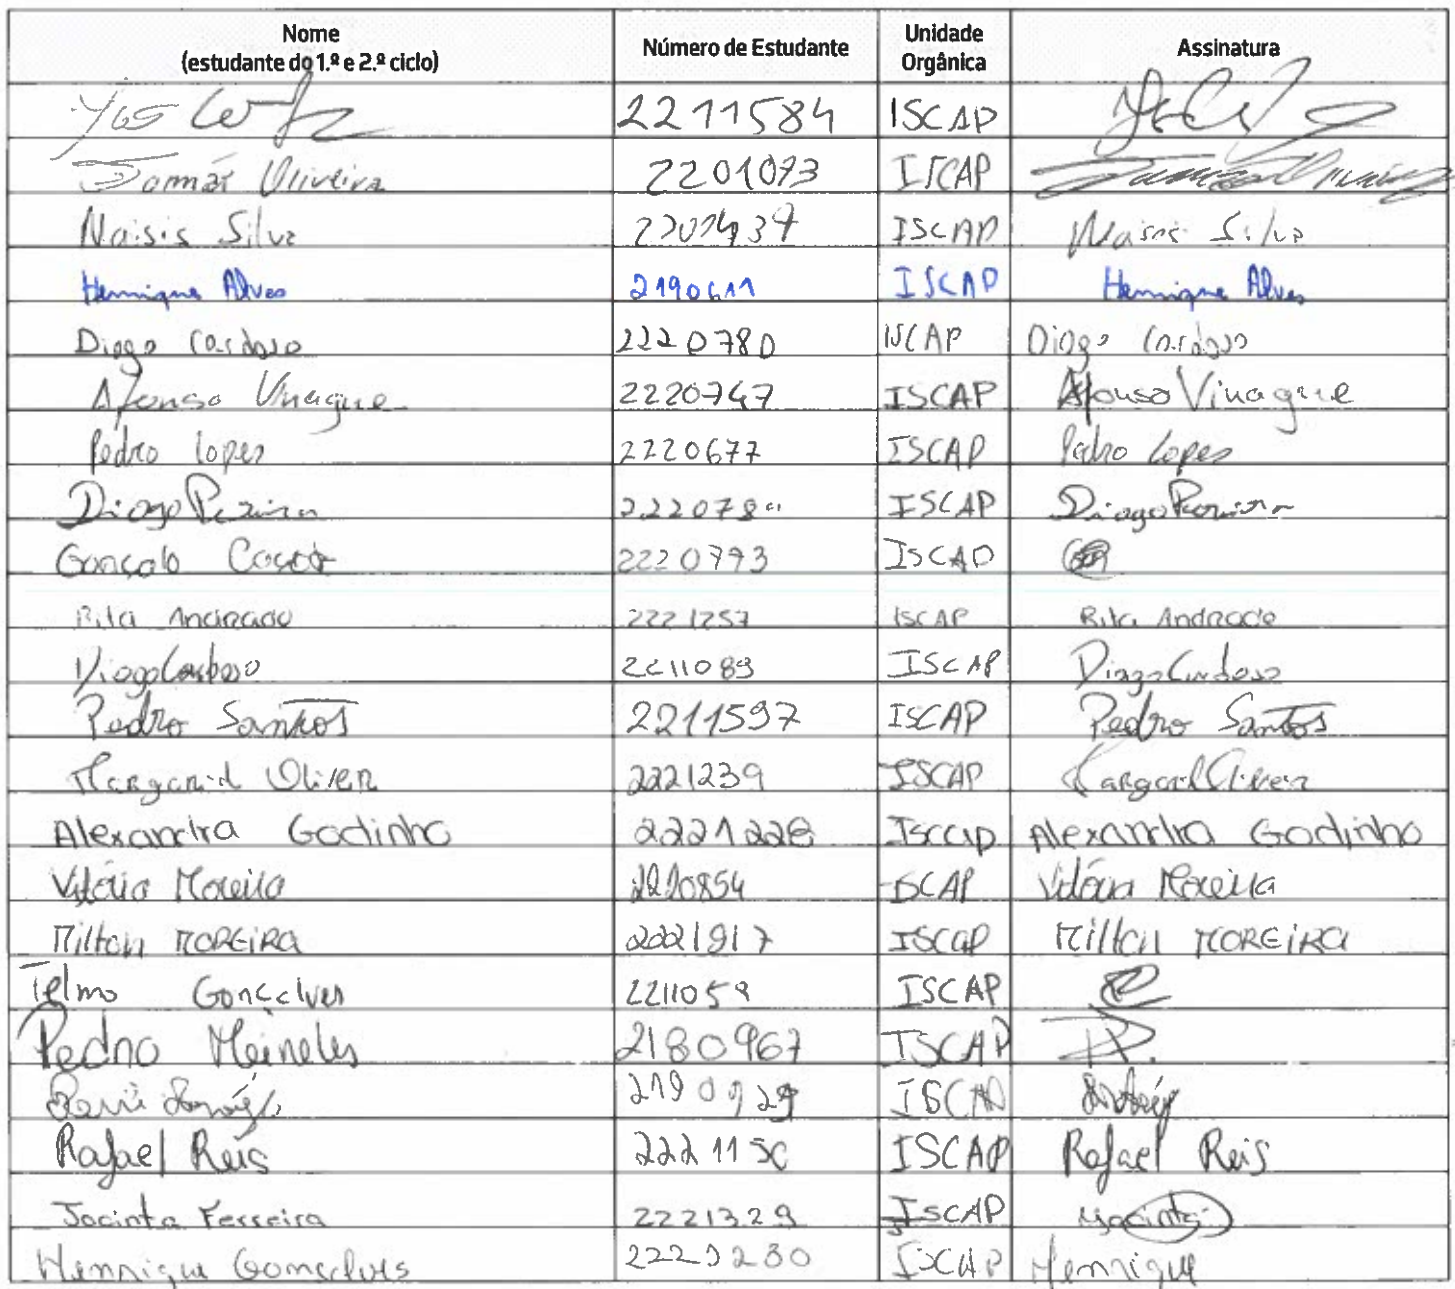 Nome (estudante do 1.º e 2.º ciclo) Número de Estudante Unidade Orgânica Assinatura
2211584 ISCAP
Tomás Oliveira 2201073 ISCAP
Silva ISCAP Silva
Henrique Alves 2190611 ISCAP Henrique Alves
Diogo Cardoso 2220780 ISCAP Diogo Cardoso
Afonso Vinagre 2220747 ISCAP Afonso Vinagre
Pedro Lopes 2220677 ISCAP Pedro Lopes
Diogo Pereira ISCAP Diogo Pereira
Gonçalo Costa 2220793 ISCAP
Rita Andrade 2221257 ISCAP Rita Andrade
Diogo Cardoso 2211089 ISCAP Diogo Cardoso
Pedro Santos 2211597 ISCAP Pedro Santos
Margarid Oliveir 2221239 ISCAP
Alexandra Godinho 2221228 ISCAP Alexandra Godinho
Vitória Moreira 2220854 ISCAP Vitória Moreira
Milton MOREiRA 2221917 ISCAP Milton MOREiRA
Telmo Gonçalves 2211059 ISCAP
Pedro Meireles 2180967 ISCAP
ISCAP
Rafael Reis 2221150 ISCAP Rafael Reis
Jacinta Ferreira 2221329 ISCAP Jacinta
Henrique Gonçalves ISCAP Henrique